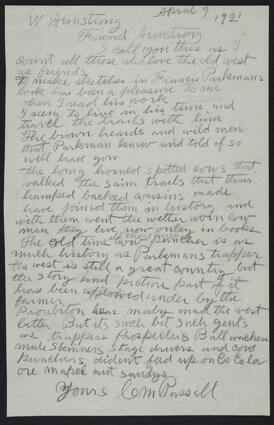 April 9 1921
W Armstrong
Friend Armstrong
I call you this as I
count all those who love the old west
as friends
To make sketches in Francis Parkmans
book has been a pleasure to me
when I read his work
I seem to live in his time and
travel the trails with him
The brown heards and wild men
that Parkman knew and told of so
well have gon
the long horned spotted cows that
walked the saim trails that their
humped backed cousins made
have joined them in history and
with them went the
men they live now only in books
The old time cow puncher is as
much history as Parkmans trapper
the west is still a great country but
the story and picture part of it
has been plowed under by the
farmer
Prohibition has maby made the west
better But its such
as trappers Prospectors Bull whackers
mule Skinners Stage drivers and cow
punchers did'ent fead up on Co Co la
ore maple nut sundays
Yours CM Russell